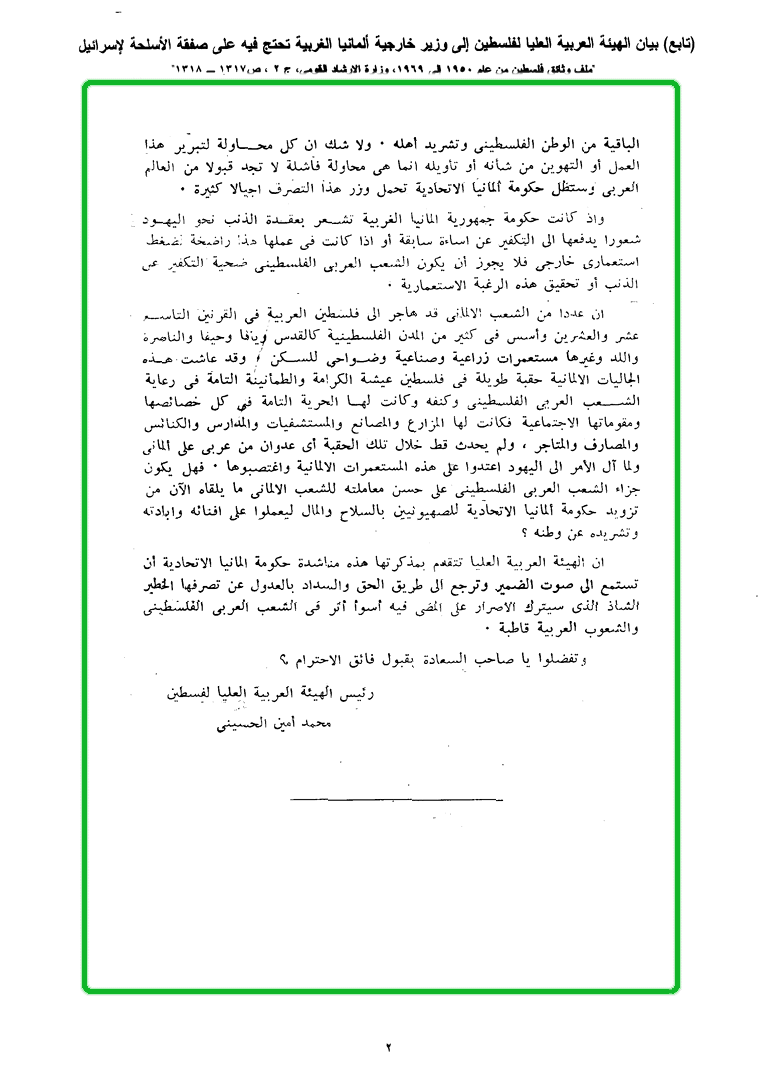 (تابع) بيان الهيئة العربية العليا لفلسطين إلى وزير خارجية ألمانيا الغربية تحتج فيه على صفقة الأسلحة لإسرائيل
"ملف وثائق فلسطين من عام ١٩٥٠ الى ١٩٦٩، وزارة الارشاد القومى، ج ٢ ، ص١٣١٧ ــ ١٣١٨"
الباقية من الوطن الفلسطينى وتشريد أهله ٠ ولا شك ان كل محـــاولة لتبرير هذا
العمل أو التهوين من شأنه أو تأويله انما هى محاولة فاشلة لا تجد قبولا من العالم
العربى وستظل حكومة ألمانيا الاتحادية تحمل وزر هذا التصرف اجيالا كثيرة ٠
واذ كانت حكومة جمهورية المانيا الغربية تشــعر بعقـدة الذنب نحو اليهـود
شعورا يدفعها الى التكفير عن اساءة سابقة أو اذا كانت فى عملها هذا راضخة لضغط
استعمارى خارجى فلا يجوز أن يكون الشعب العربى الفلسطينى ضحية التكفير عن
الذنب أو تحقيق هذه الرغبة الاستعمارية ٠
ان عددا من الشعب الالمانى قد هاجر الى فلسطين العربية فى القرنين التاســـع
عشر والعشرين وأسس فى كثير من المدن الفلسطينية كالقدس ويافا وحيفا والناصرة
واللد وغيرها مستعمرات زراعية وصناعية وضــواحى للســكن ، وقد عاشت هــذه
الجاليات الالمانية حقبة طويلة فى فلسطين عيشة الكرامة والطمأنينة التامة فى رعاية
الشــــعب العربى الفلسطينى وكنفه وكانت لهــا الحرية التامة فى كل خصائصها
ومقوماتها الاجتماعية فكانت لها المزارع والمصانع والمستشفيات والمدارس والكنائس
والمصارف والمتاجر ، ولم يحدث قط خلال تلك الحقبة أى عدوان من عربى على ألمانى
ولما آل الأمر الى اليهود اعتدوا على هذه المستعمرات الالمانية واغتصبوها ٠ فهل يكون
جزاء الشعب العربى الفلسطينى على حسن معاملته للشعب الالمانى ما يلقاه الآن من
تزويد حكومة ألمانيا الاتحادية للصهيونيين بالسلاح والمال ليعملوا على افنائه وابادته
وتشريده عن وطنه ؟
ان الهيئة العربية العليا تتقدم بمذكرتها هذه مناشدة حكومة المانيا الاتحادية أن
تستمع الى صوت الضمير وترجع الى طريق الحق والسداد بالعدول عن تصرفها الخطير
الشاذ الذى سيترك الاصرار على المضى فيه أسوأ أثر فى الشعب العربى الفلسطينى
والشعوب العربية قاطبة ٠
وتفضلوا يا صاحب السعادة بقبول فائق الاحترام ؟
رئيس الهيئة العربية العليا لفسطين
محمد أمين الحسينى
٢